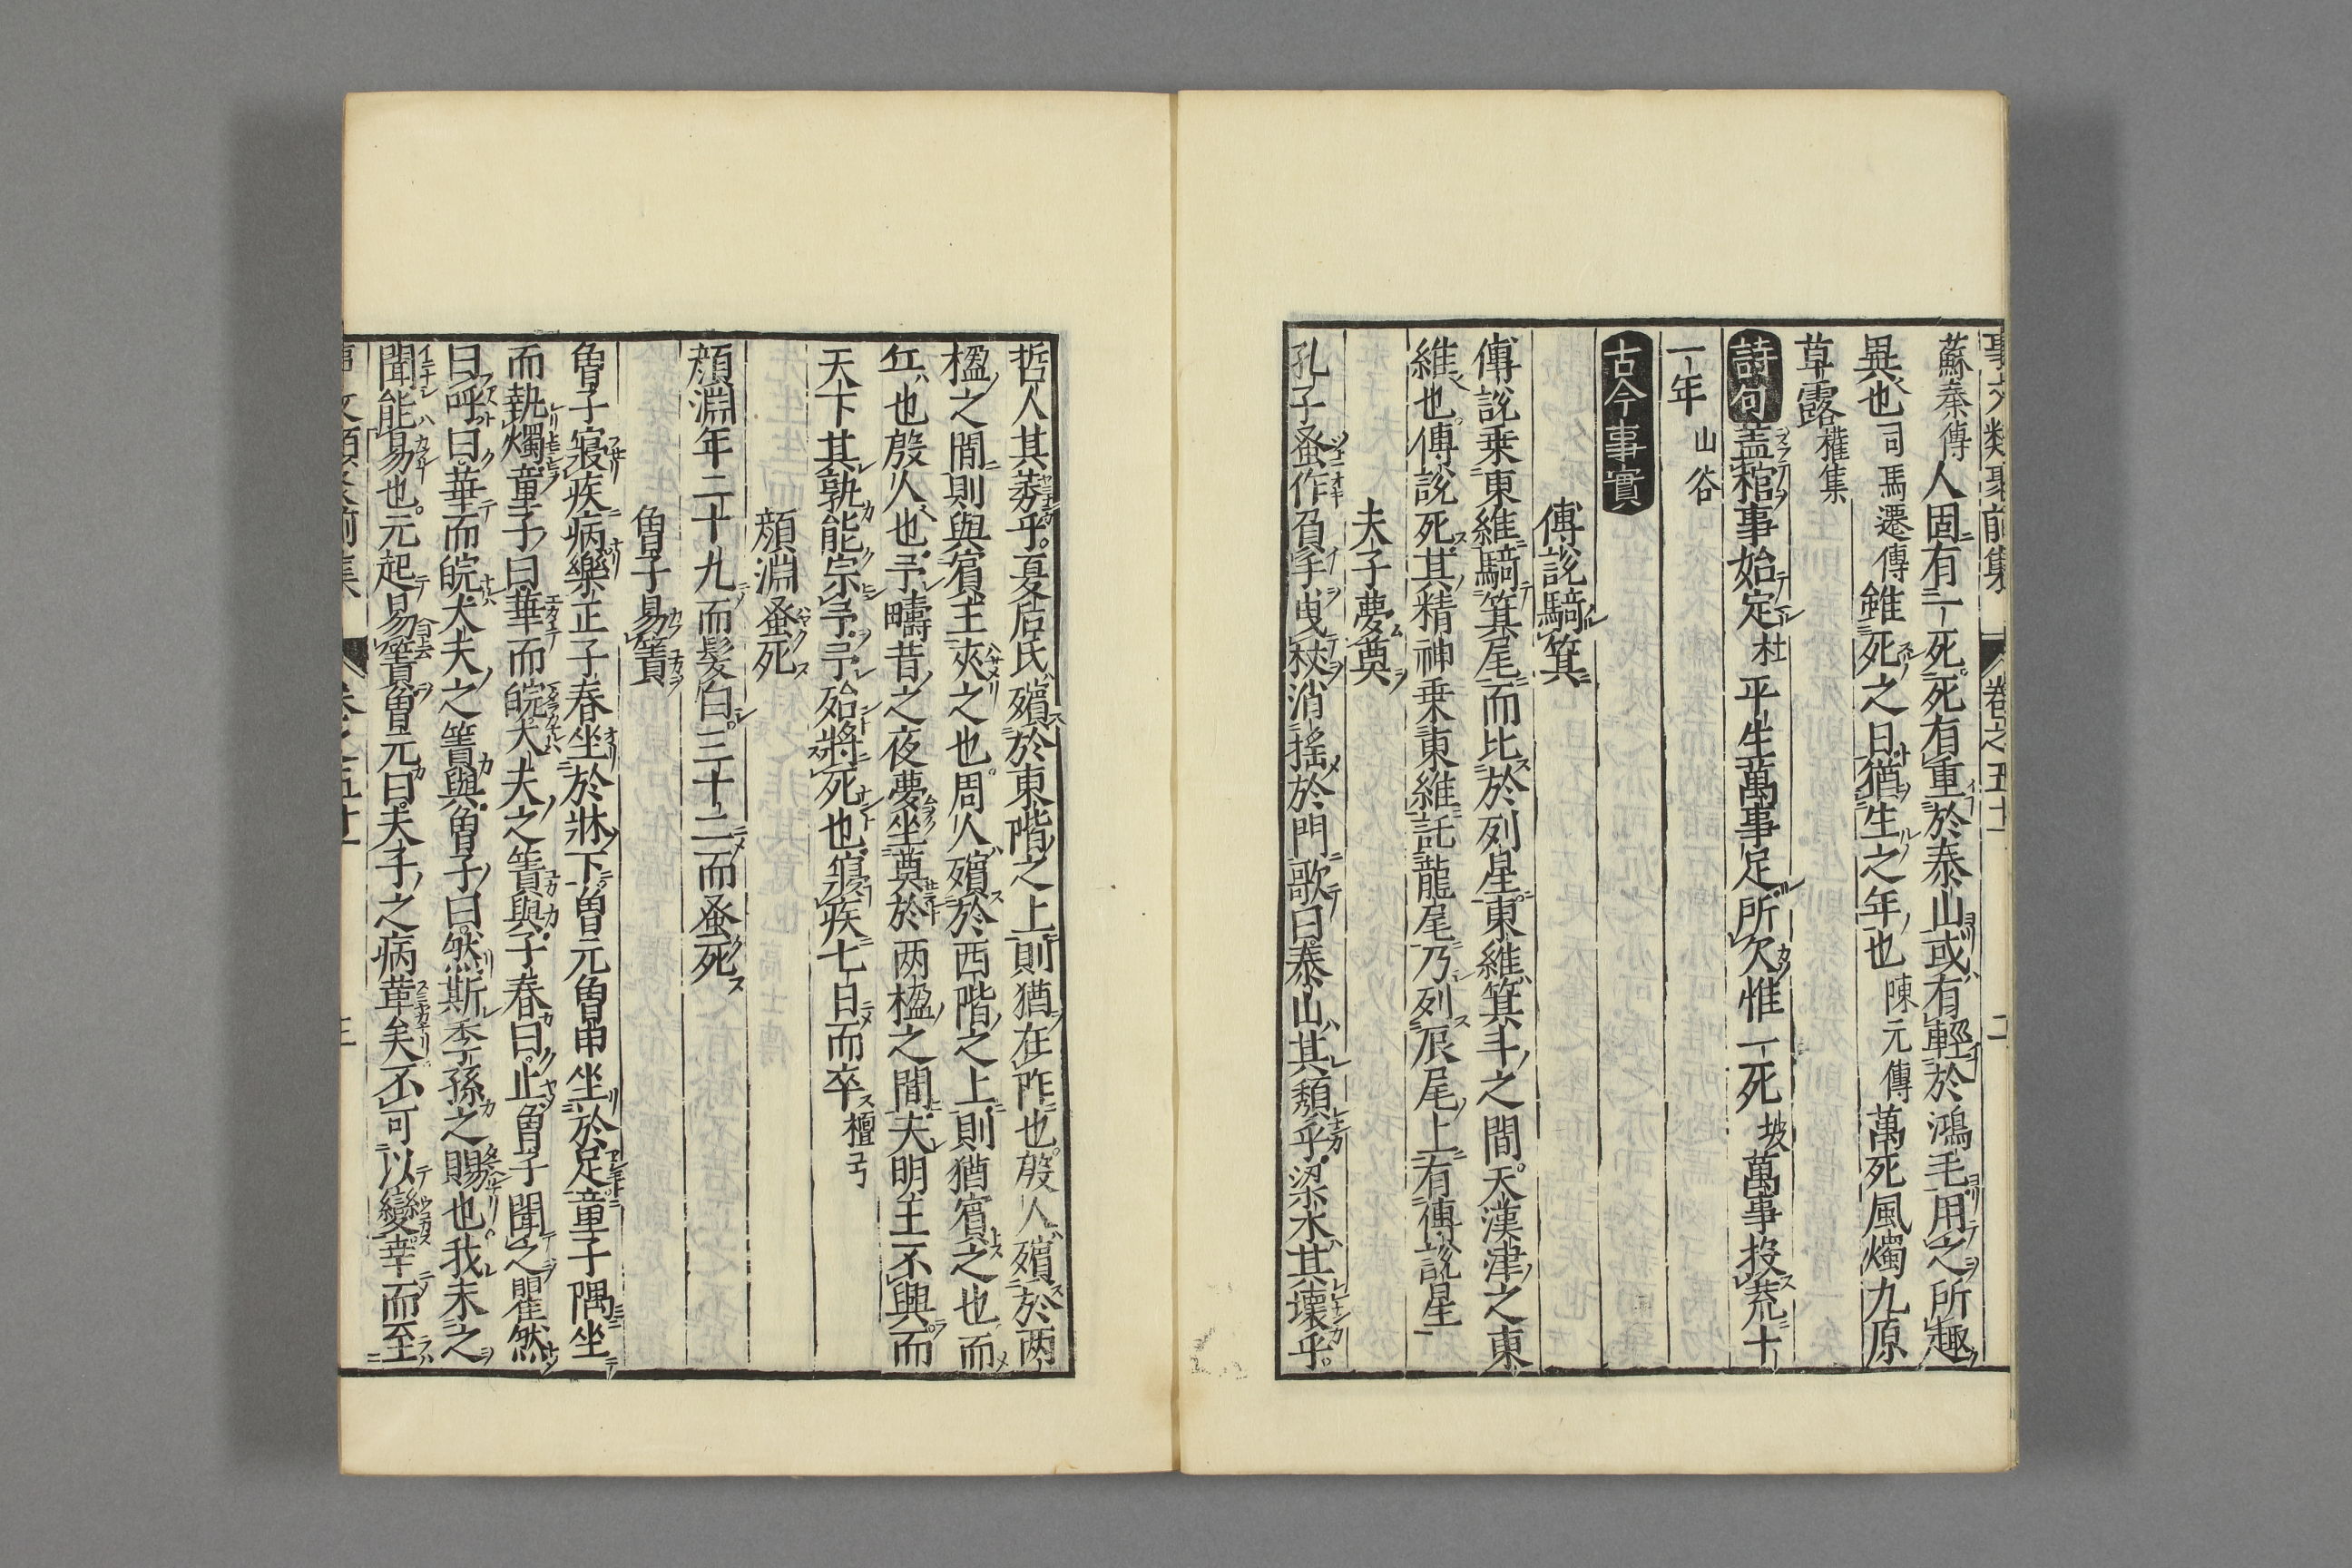 事文類聚前集 卷之五十一 二
蘇秦傳人固有一死死有重於泰山或有輕於鴻毛用之所趣
異也司馬遷傳雖死之日猶生之年也陳元傳萬死風燭九原
草露權集
詩句 盖棺事始定杜平生萬事足所欠惟一死坡萬事投荒十
一年山谷
古今事實
傅說騎箕
傅說乗東維騎箕尾而比於列星東維箕斗之間天漢津之東
維也傅說死其精神乗東維託龍尾乃列辰尾上有傅說星
夫子夢奠
孔子蚤作負手曳杖消揺於門歌曰泰山其頽乎梁木其壞乎
哲人其萎乎夏后氏殯於東階之上則猶在阼也殷人殯於两
楹之間則與賓主夾之也周人殯於西階之上則猶賓之也而
丘也殷人也予疇昔之夜夢坐奠於两楹之間夫明王不興而
天下其孰能宗予予殆將死也寢疾七日而卒檀弓
顔淵蚤死
顔淵年二十九而髮白三十二而蚤死
曾子易簀
曾子寢疾病樂正子春坐於牀下曽元曾申坐於足童子隅坐
而執燭童子曰華而皖大夫之簀與子春曰止曾子聞之瞿然
曰呼曰華而皖大夫之簀與曾子曰然斯季孫之賜也我未之
聞能易也元起易簀曽元曰夫子之病革矣不可以變幸而至
事文類聚前集 卷之五十一 三